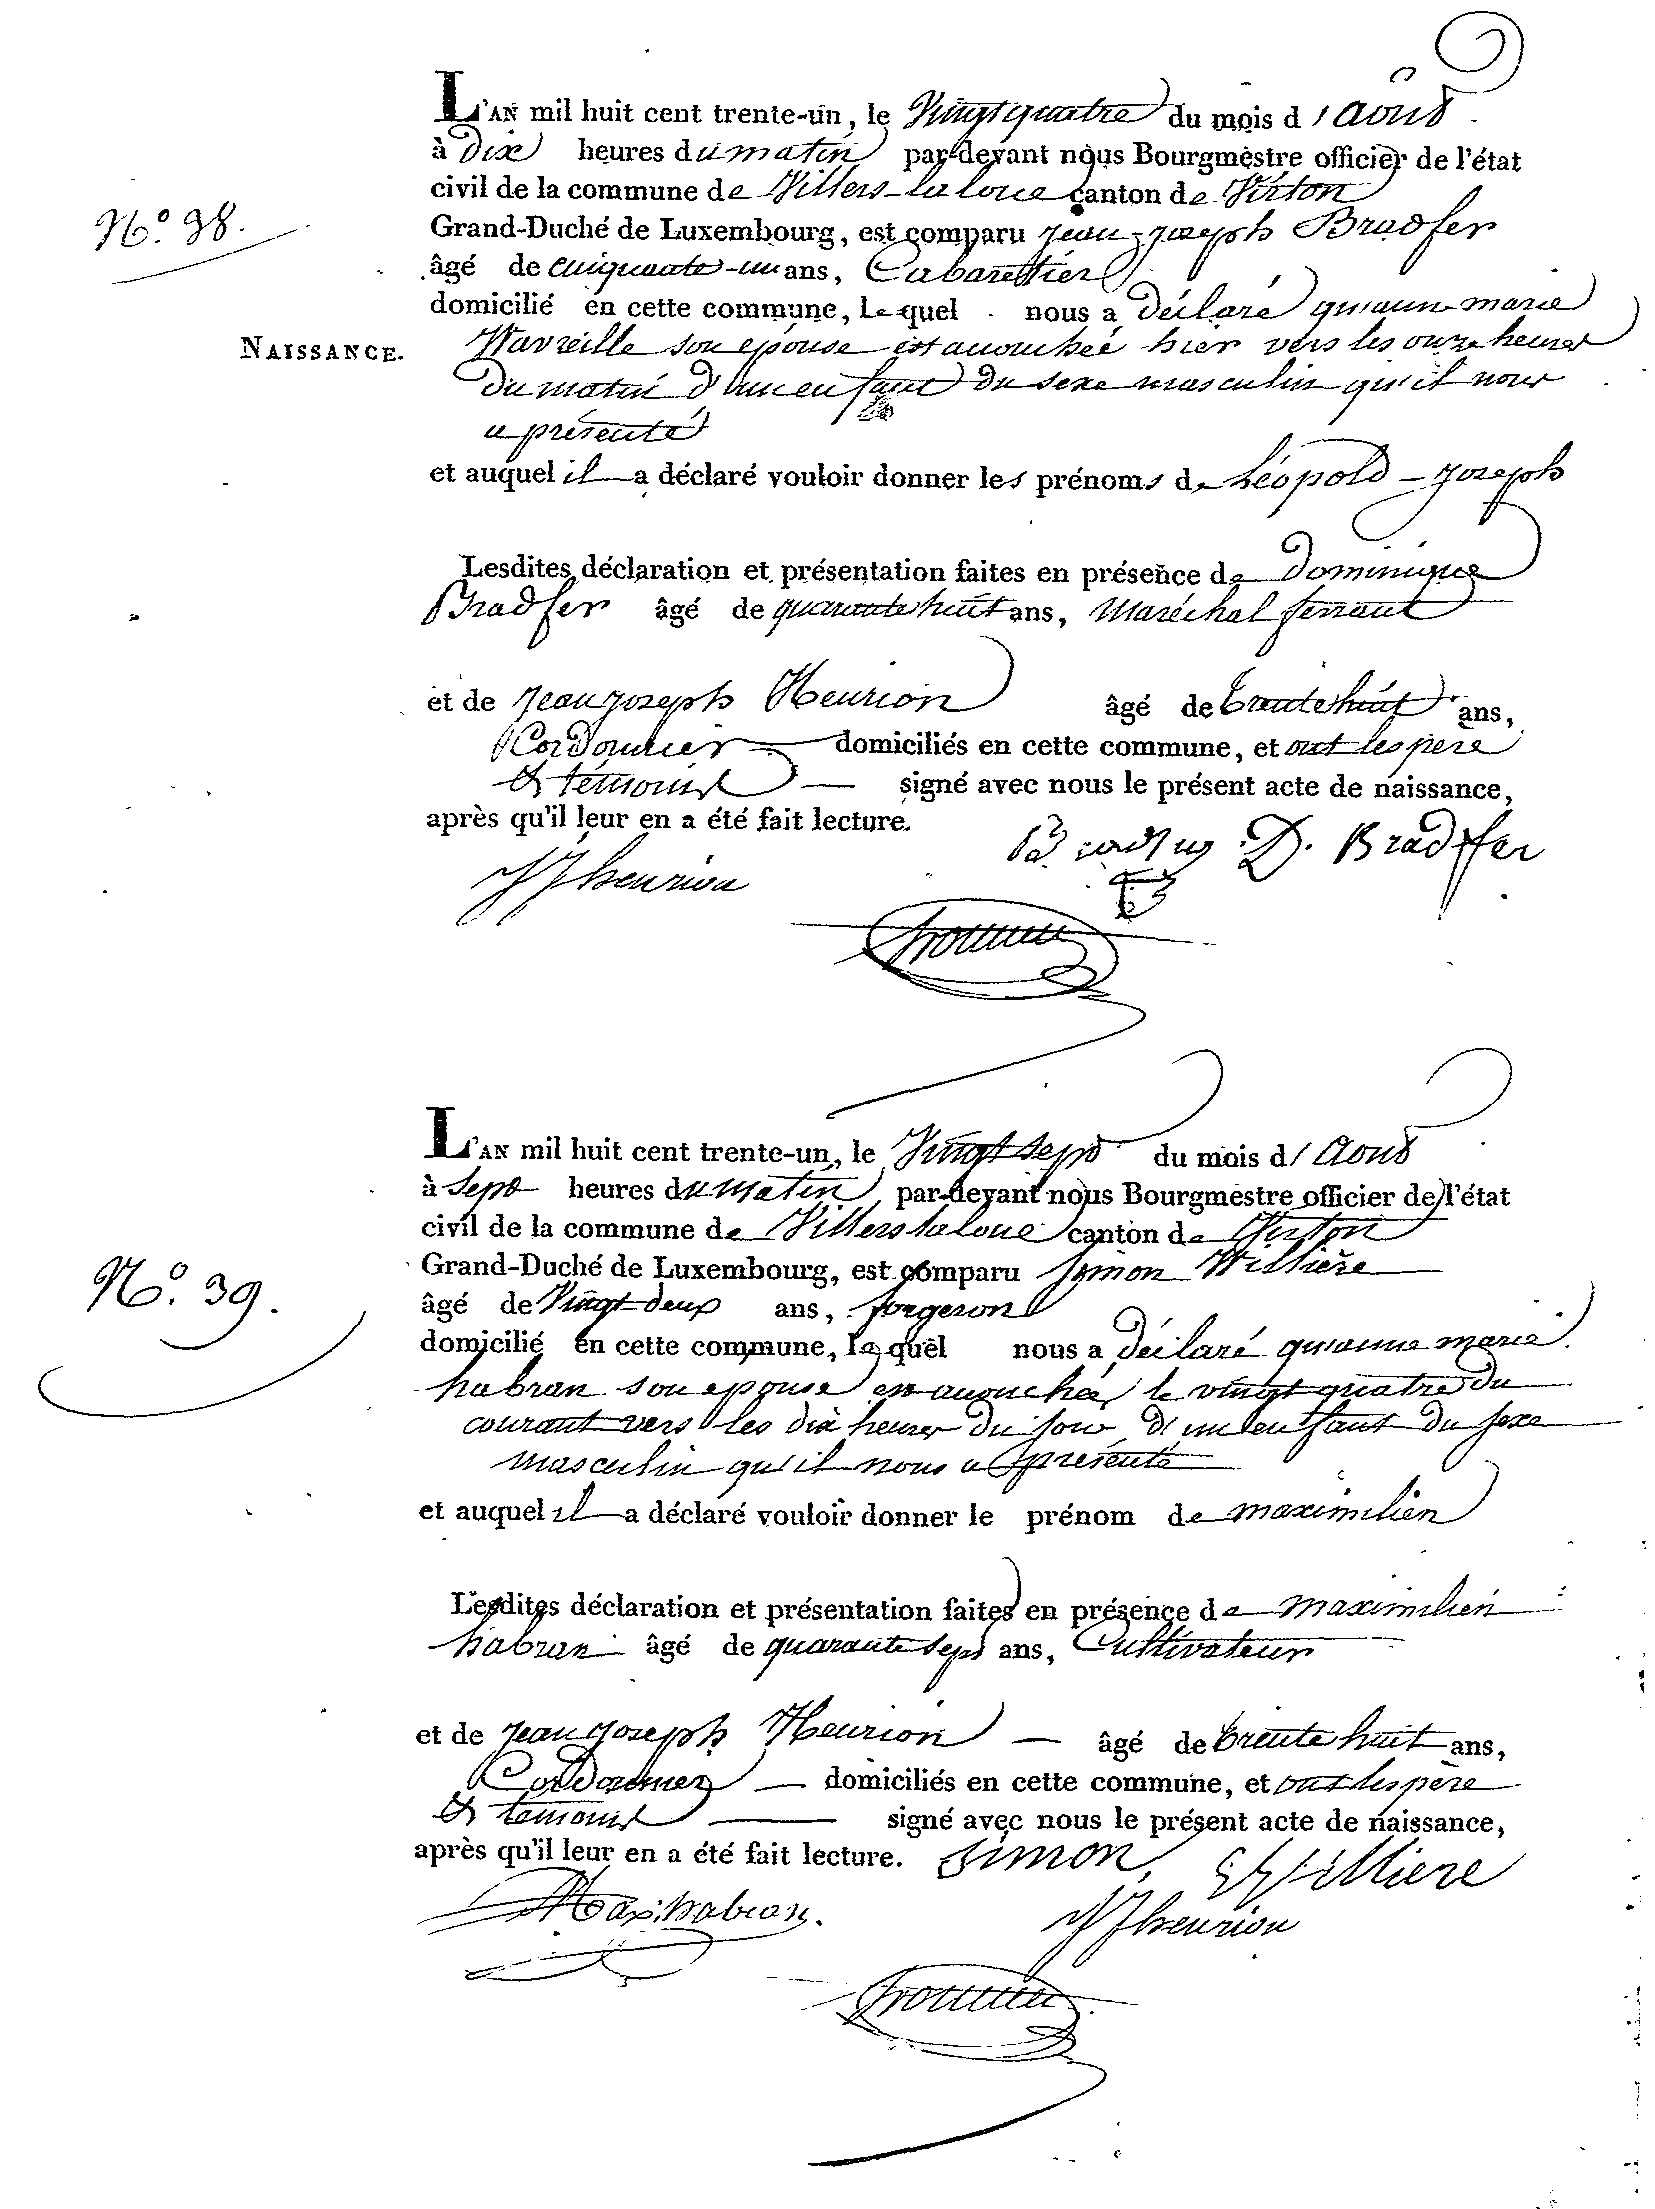 L'AN mil huit cent trente-un, le Vingt quatre du mois d'Août
à Dix heures du matin par-devant nous Bourgmestre officier de l'état
civil de la commune de Villers-la loue canton de Virton
N.º 38.
Grand-Duché de Luxembourg, est comparu Jean-Joseph Bradfer
âgé de cinquante-un ans, Cabarettier
domicilié en cette commune, Lequel nous a Déclaré qu'anne marie
NAISSANCE.
Wavreille son épouse est accouchée hier vers les onze heures
Du matin D'un enfant Du sexe masculin qu'il nous
a présenté
et auquel il a déclaré vouloir donner les prénoms de Léopold-Joseph
Lesdites déclaration et présentation faites en présence de Dominique
Bradfer âgé de quarante huit ans, Maréchal ferrant
et de Jean Joseph Henrion âgé de trente huit ans,
Cordonnier domiciliés en cette commune, et ont les père
et témoins signé avec nous le présent acte de naissance,
après qu'il leur en a été fait lecture.
Bradfer D. Bradffer
JJ henrion
L'AN mil huit cent trente-un, le Vingt sept du mois d'Aout
à Sept heures du matin par-devant nous Bourgmestre officier de l'état
civil de la commune de Villers la loue canton de Virton
N.º 39.
Grand-Duché de Luxembourg, est comparu Simon Willière
âgé de Vingt-deux ans, forgeron
domicilié en cette commune, Lequel nous a Déclaré qu'anne marie
habran son epouse est accouchée le vingt quatre du
courant vers les dix heures du soir D'un enfant Du sexe
masculin qu'il nous a présenté
et auquel il a déclaré vouloir donner le prénom de maximilien
Lesdites déclaration et présentation faites en présence de maximilien
habran âgé de quarante sept ans, Cultivateur
et de Jean Joseph Henrion âgé de trente huit ans,
Cordonnier domiciliés en cette commune, et ont les père
et temoins signé avec nous le présent acte de naissance,
après qu'il leur en a été fait lecture. Simon Willière
Max. habran.
JJ henrion